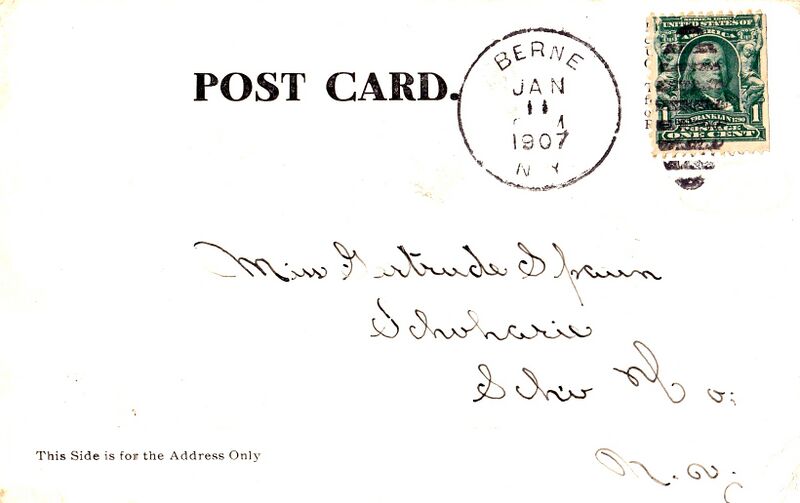 POST CARD.
BERNE
JAN
11
M
1907
N Y
SERIES 1902
UNITED STATES OF
AMERICA
1 FRANKLIN 1790 1
POSTAGE
ONE CENT
Miss Gertrude Spaun
Schoharie
Scho Co.
N. Y.
This Side is for the Address Only